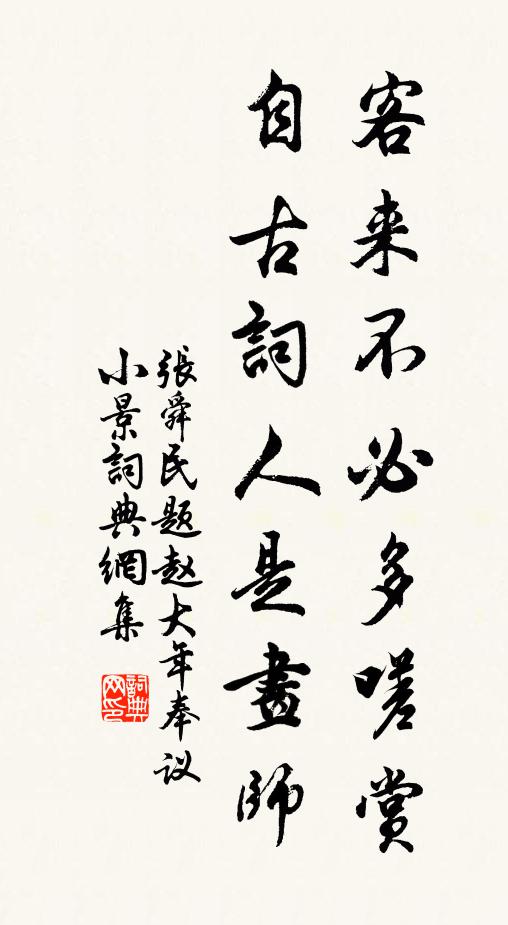 客来不必多嗟赏
自古詞人是畫師
張舜民题赵大年奉议
小景詞典網集
詞典
网印